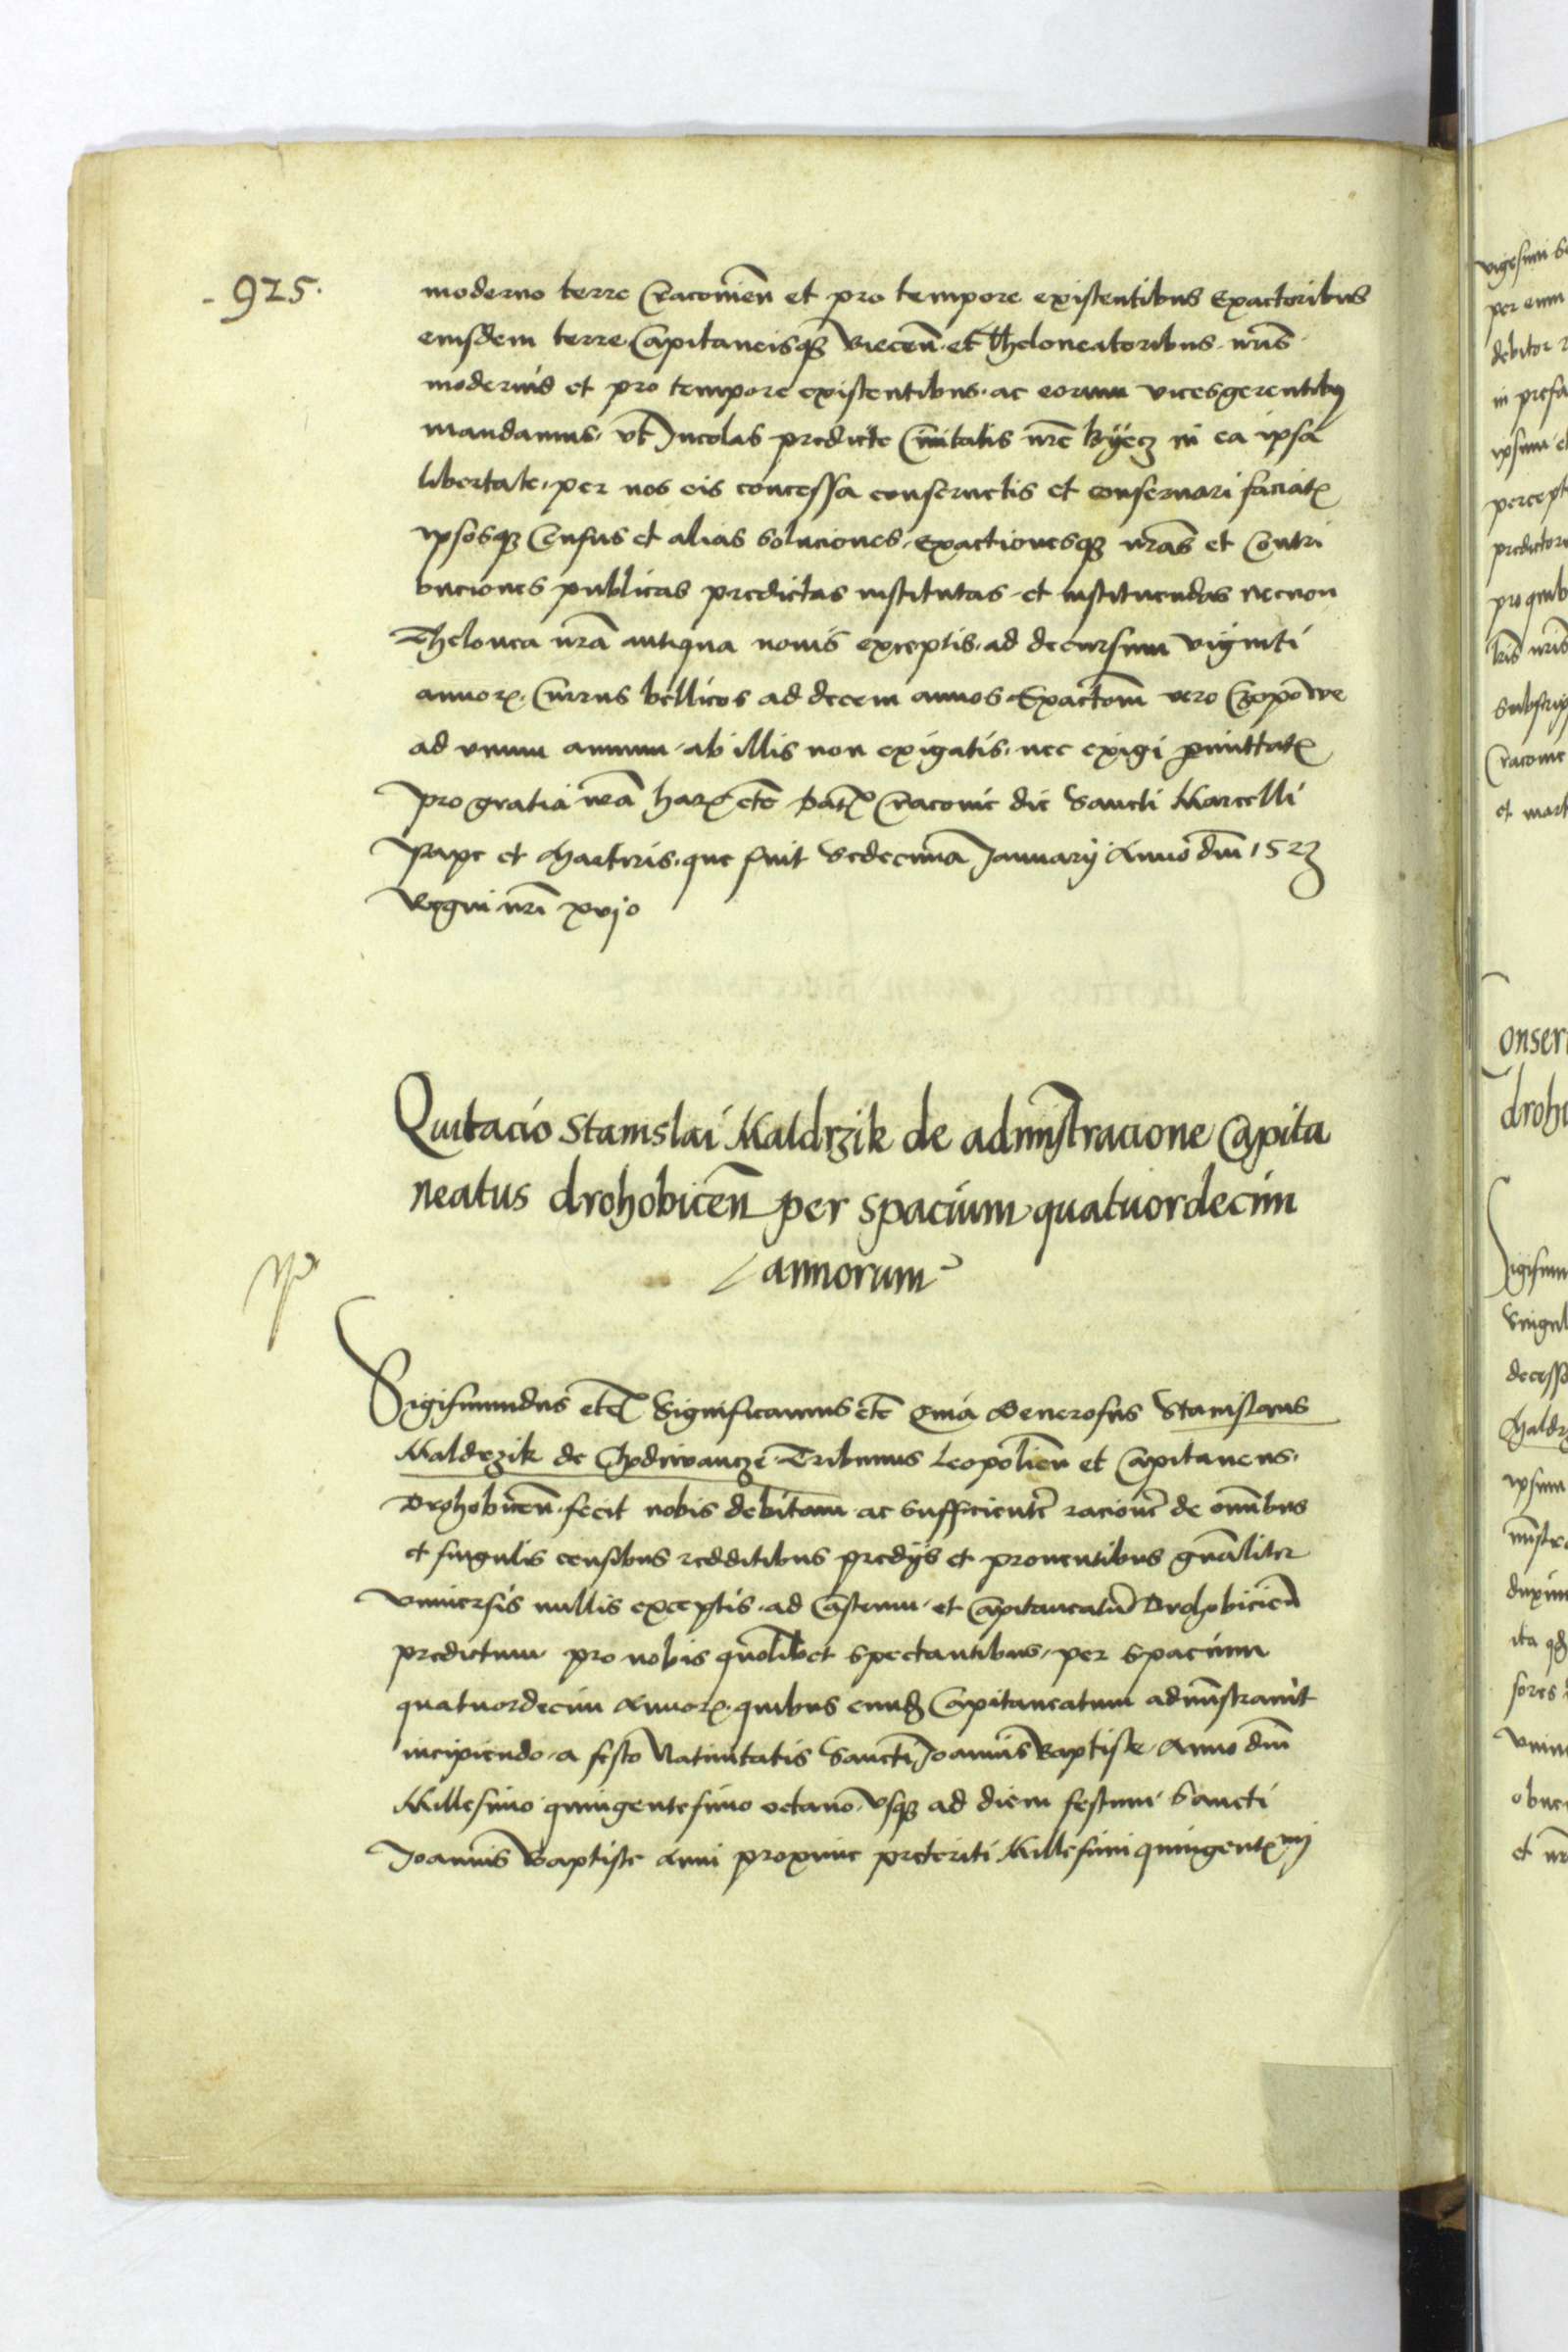 - 925.
moderno terre Cracouien̄ et pro tempore existentibus Exactoribus
eiusdem terre Capitaneisq3 Biecen̄. et Theloneatoribus. nr̄is
modernis et pro tempore existentibus. ac eorum vicesgerentibus
mandamus. vt Incolas predicte Ciuitatis nr̄e Byecz in ea ipsa
libertate, per nos eis concessa conseruetis et conseruari faciatꝭ
ipsosq3 Census et alias soluciones, exactionesq3 nr̄as et Contri
buciones publicas predictas institutas et instituendas necnon
Thelonea nr̄a antiqua nouis exceptis. ad decursum viginti
annorꝭ. Currus bellicos ad decem annos. Exactōm vero Czopowe
ad vnum annum. ab illis non exigatis. nec exigi pmittatꝭ
pro gratia nr̄a harꝭ etc̄ Datꝭ Cracouie die Sancti Marcelli
Pape et Martiris. que fuit Sedecima Januarij Anno dm̄ 1523
Regni nr̄i xvjo
Quitacio Stanislai Maldrzik de admīstracione Capita
neatus drohobicen̄ per spacium quatuordecim
annorum
Sigismundus etc̄ Significamus etc̄ Quia Generosus Stanislaus
Maldrzik de Chodiwancze Tribunus Leopolien̄ et Capitaneus.
Drohobicen̄. fecit nobis debitam ac sufficientē racionē de om̄ibus
et singulis censibus redditibus predijs et prouentibus gn̄aliter
vniuersis nullis exceptis. ad Castrum et Capitaneatū Drohobicien̄
predictum pro nobis quolibet spectantibus, per spacium
quatuordecim Annorꝭ. quibus eund̄ Capitaneatum admīstrauit
incipiendo. a festo Natiuitatis Sancti Joannis Baptiste Anno dm̄
Millesimo quingentesimo octauo. vsq3 ad diem festum Sancti
Joannis Baptiste Anni proxime preteriti Millesimi quingentꝭmi